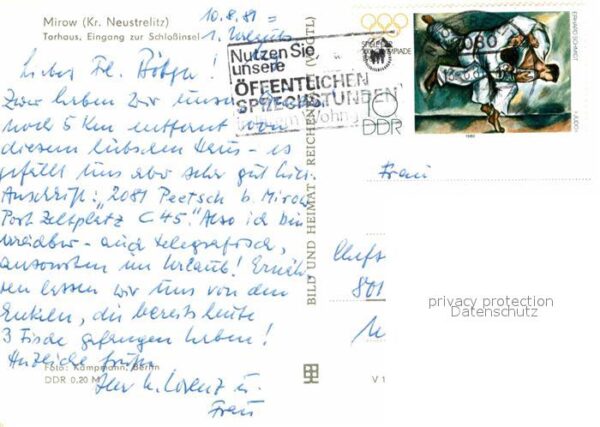 Mirow (Kr. Neustrelitz)
Torhaus, Eingang zur Schloßinsel
10.8.81 =
1. Urlaubs
Liebes Frl.
Zwar haben wir unser
noch 5 Km entfernt von
diesem hübschen Haus - es
gefällt uns aber sehr gut hier.
Anschrift: "2081 Peetsch b. Mirow
Post Zeltplatz C 45." Also ich bin
erreichbar - auch telegrafisch,
ansonsten im Urlaub! Ernähr
ren lassen wir uns von den
Enkeln, die bereits heute
3 Fische gefangen haben!
Herzliche Grüße
Foto: Kampmann, Berlin
DDR 0,20 M
Ihr W. Lorenz u.
Frau
BILD UND HEIMAT REICHENBACH (VOGTL)
V 1
Nutzen Sie
unsere
ÖFFENTLICHEN
SPRECHSTUNDEN
10
DDR
1980
Frau
801
privacy protection
Datenschutz